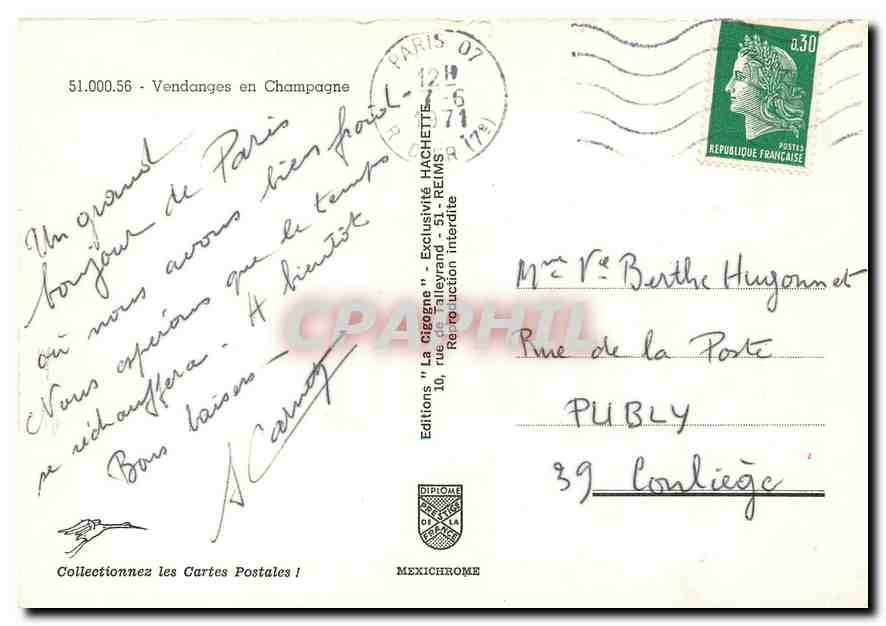 51.000.56 - Vendanges en Champagne
Un grand
bonjour de Paris
où nous avons bien froid -
Nous espérons que le temps
se réchauffera - A bientôt
Bons baisers -
S Carnot
Collectionnez les Cartes Postales !
PARIS 07
12H
7-6
1971
R. CLER (7e)
Editions "La Cigogne" - Exclusivité HACHETTE
10, rue de Talleyrand - 51 - REIMS
Reproduction interdite
DIPLOME
PRESTIGE
DE LA
FRANCE
MEXICHROME
0,30
POSTES
REPUBLIQUE FRANÇAISE
Mme Ve Berthe Hugonnet
Rue de la Poste
PUBLY
39 Conliège
CPAPHIL